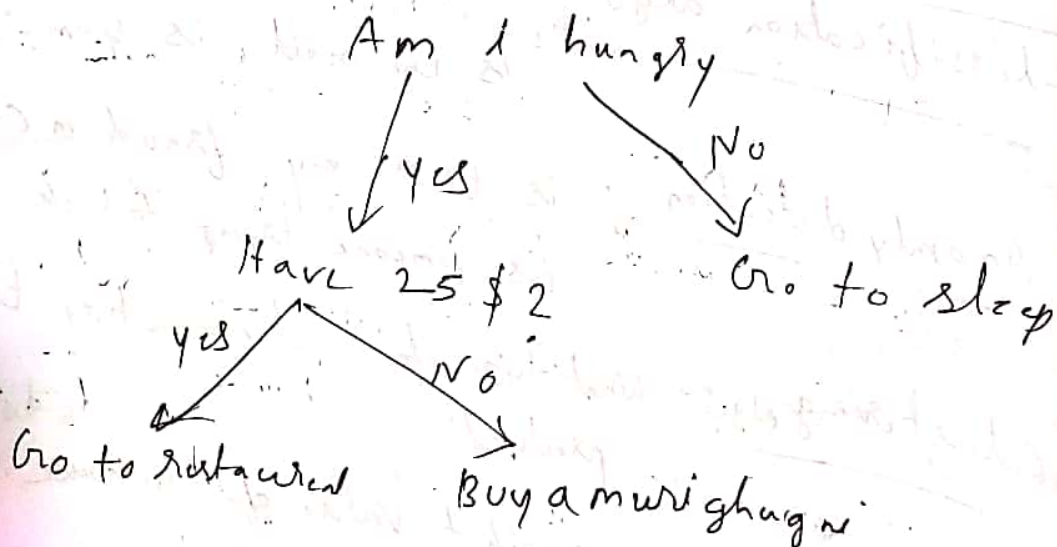 Am I hungry
No
yes
Have 25 $ ?
Go to sleep
yes
No
Go to restaurent
Buy a muri ghugni